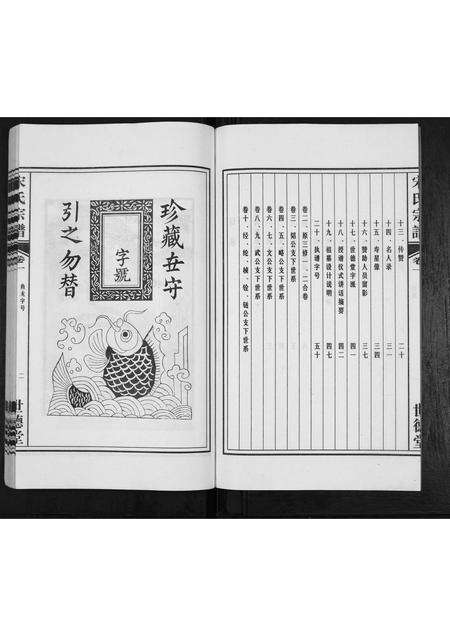 宋氏宗譜
卷一
世德堂
十三、传赞 二十
十四、名人录 三一
十五、寿星像 三四
十六、赞助人员留影 三七
十七、世德堂字派 四一
十八、授谱仪式讲话摘要 四二
十九、祖墓设计说明 四七
二十、执谱字号 五十
卷二、原三修一、二合卷
卷三、
公支下世系
卷四、五、略公支下世系
卷六、七、文公支下世系
卷八、九、武公支下世系
卷十、经、轮、桢、铨、链公支下世系
珍藏世守
字號
引之勿替
宋氏宗譜
卷一
典夫字号
二
世德堂